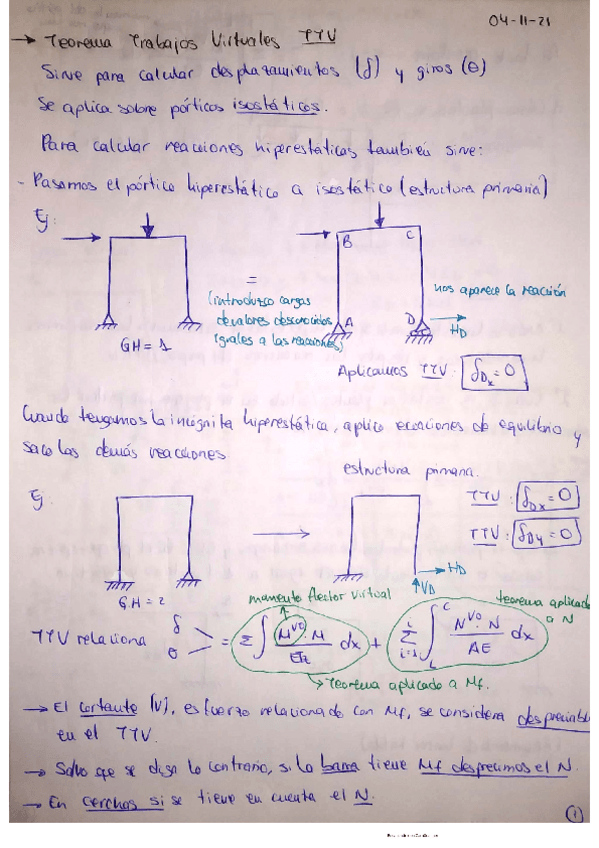 04-11-21
→ Teorema Trabajos Virtuales TTV
Sirve para calcular desplazamientos (δ) y giros (θ)
Se aplica sobre pórticos isostáticos.
Para calcular reacciones hiperestáticas también sirve:
- Pasamos el pórtico hiperestático a isostático (estructura primaria)
Ej:
B C
=
nos aparece la reacción
(introduzco cargas
de valores desconocidos
iguales a las reacciones)
A D
HD
GH = 1
Aplicamos TTV: δDx = 0
Cuando tengamos la incógnita hiperestática, aplico ecuaciones de equilibrio y
saco las demás reacciones.
estructura primaria.
Ej:
TTV: δDx = 0
TTV: δDy = 0
HD
VD
GH = 2
momento flector virtual
teorema aplicado
a N
TTV relaciona δ θ = Σ∫ M^VO · M / EIz dx + Σ i=1 i ∫ L C N^VO · N / AE dx
→ Teorema aplicado a Mf.
→ El cortante (V), esfuerzo relacionado con Mf, se considera despreciable
en el TTV.
→ Salvo que se diga lo contrario, si la barra tiene Mf despreciamos el N.
→ En cerchas si se tiene en cuenta el N.
1